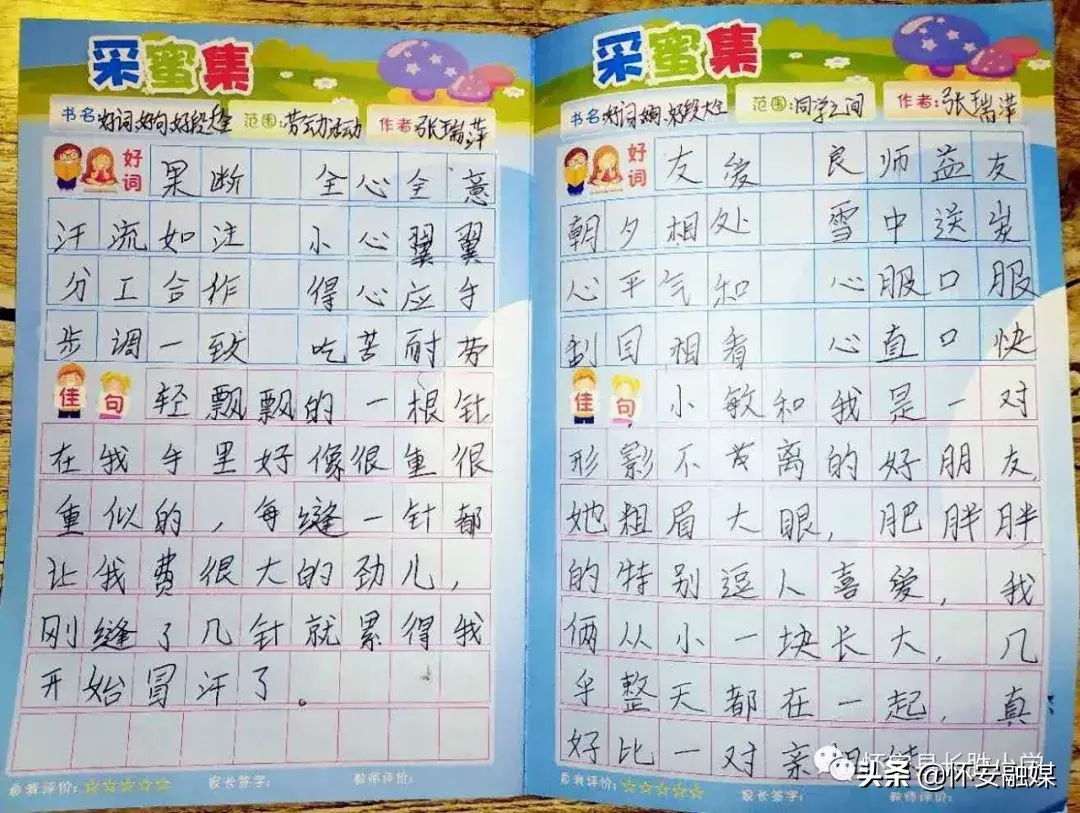 采蜜集
书名:好词好句好段大全 范围:劳动活动 作者:张瑞萍
好词 果断 全心全意
汗流如注 小心翼翼
分工合作 得心应手
步调一致 吃苦耐劳
佳句 轻飘飘的一根针
在我手里好像很重很
重似的，每缝一针都
让我费很大的劲儿，
刚缝了几针就累得我
开始冒汗了。
自我评价:☆☆☆☆☆ 家长签字: 教师评价:
采蜜集
书名:好词好句好段大全 范围:同学之间 作者:张瑞萍
好词 友爱 良师益友
朝夕相处 雪中送炭
心平气和 心服口服
刮目相看 心直口快
佳句 小敏和我是一对
形影不 离的好朋友,
她粗眉大眼，肥胖胖
的特别逗人喜爱，我
俩从小一块长大，几
乎整天都在一起，真
好比一对亲
自我评价:☆☆☆☆☆ 家长签字: 教师评价:
怀安县长胜小学
头条 @怀安融媒